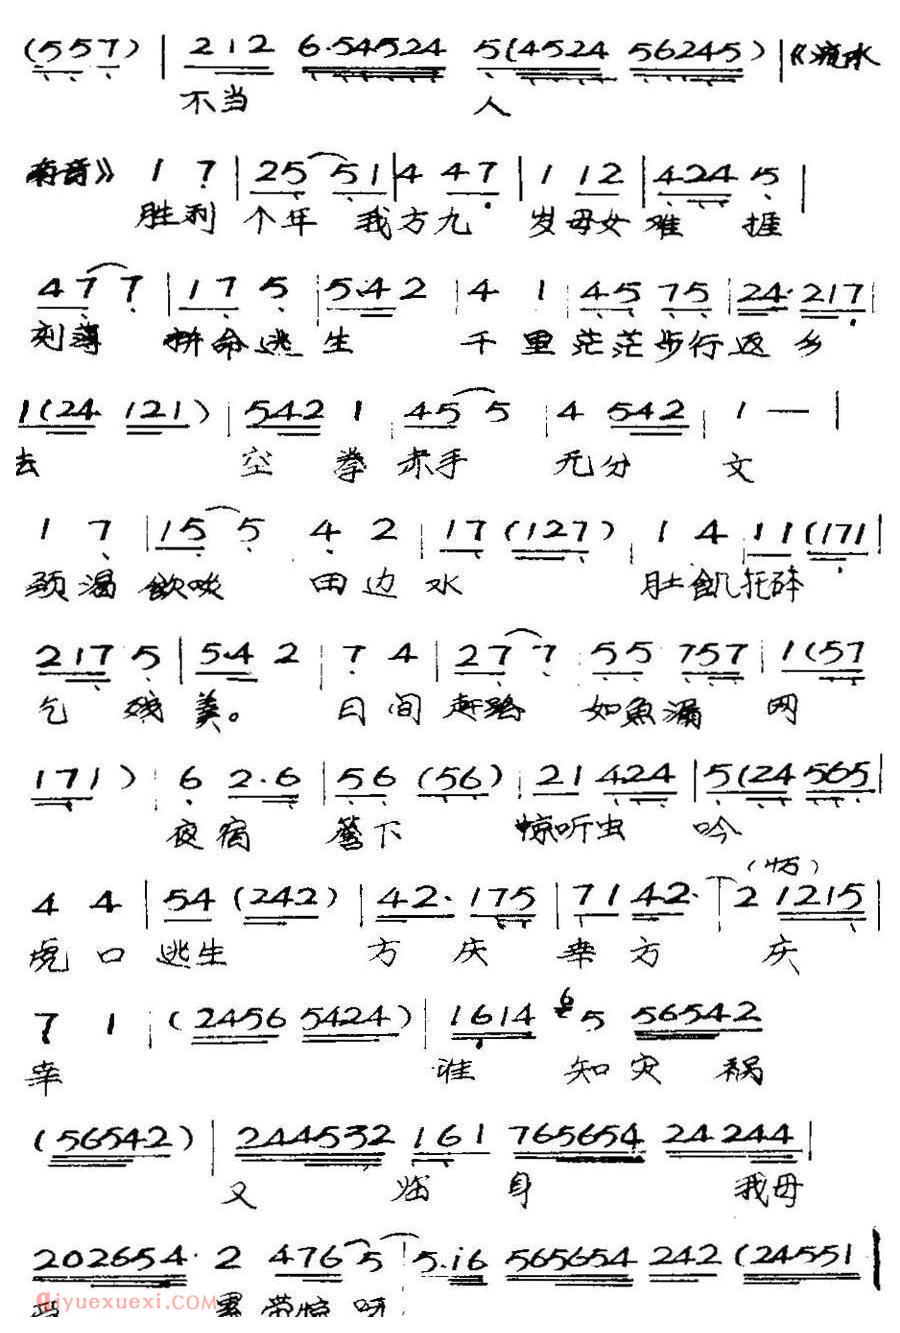 (557) | 212 6·54524 5(4524 56245) | 《流水
不当 人
南音》 1 7 | 25 51 | 4 47 | 1 112 | 424 5 |
胜利 个年 我方九 岁母女难 捱
477 | 17 5 | 5·42 | 4 1 | 45 75 | 24· 217 |
刻薄 拼命逃生 千里茫茫步行返乡
1(24· 121) | 542 1 | 45 5 | 4 542 | 1 — |
去 空拳赤手 无分文
1 7 | 15 5 4 2 | 17 (127) | 1 4 11 (171 |
颈渴飲啖田边水 肚飢托砵
217 5 | 5·4 2 | 7 4 | 27 7 55 757 | 1(57
乞残羹。日间赶路 如魚漏网
171) 6 2·6 | 56 (56) | 21 424 | 5(24 565 |
夜宿 下 惊听虫 吟
4 4 | 54 (242) | 42· 175 | 71 42· 2 1215 |
虎口逃生 方庆幸方 庆
7 1 | (2456 5424) | 1614 6 5 56542
幸 谁 知灾祸
(56542) | 244532 161 765654 24244 |
又 临 身 我母
202654· 2 476 5 5·i6 565654 242 (24551
jiyuexuexi.com 带 呀